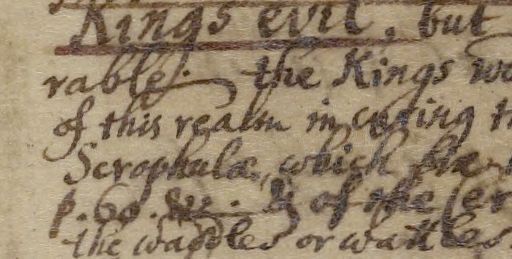 Kings evil, but
rable). the Kings wo
of this realm in curing th
Scrophulæ, which
p. 60. & of the ser
the waddles or wattles